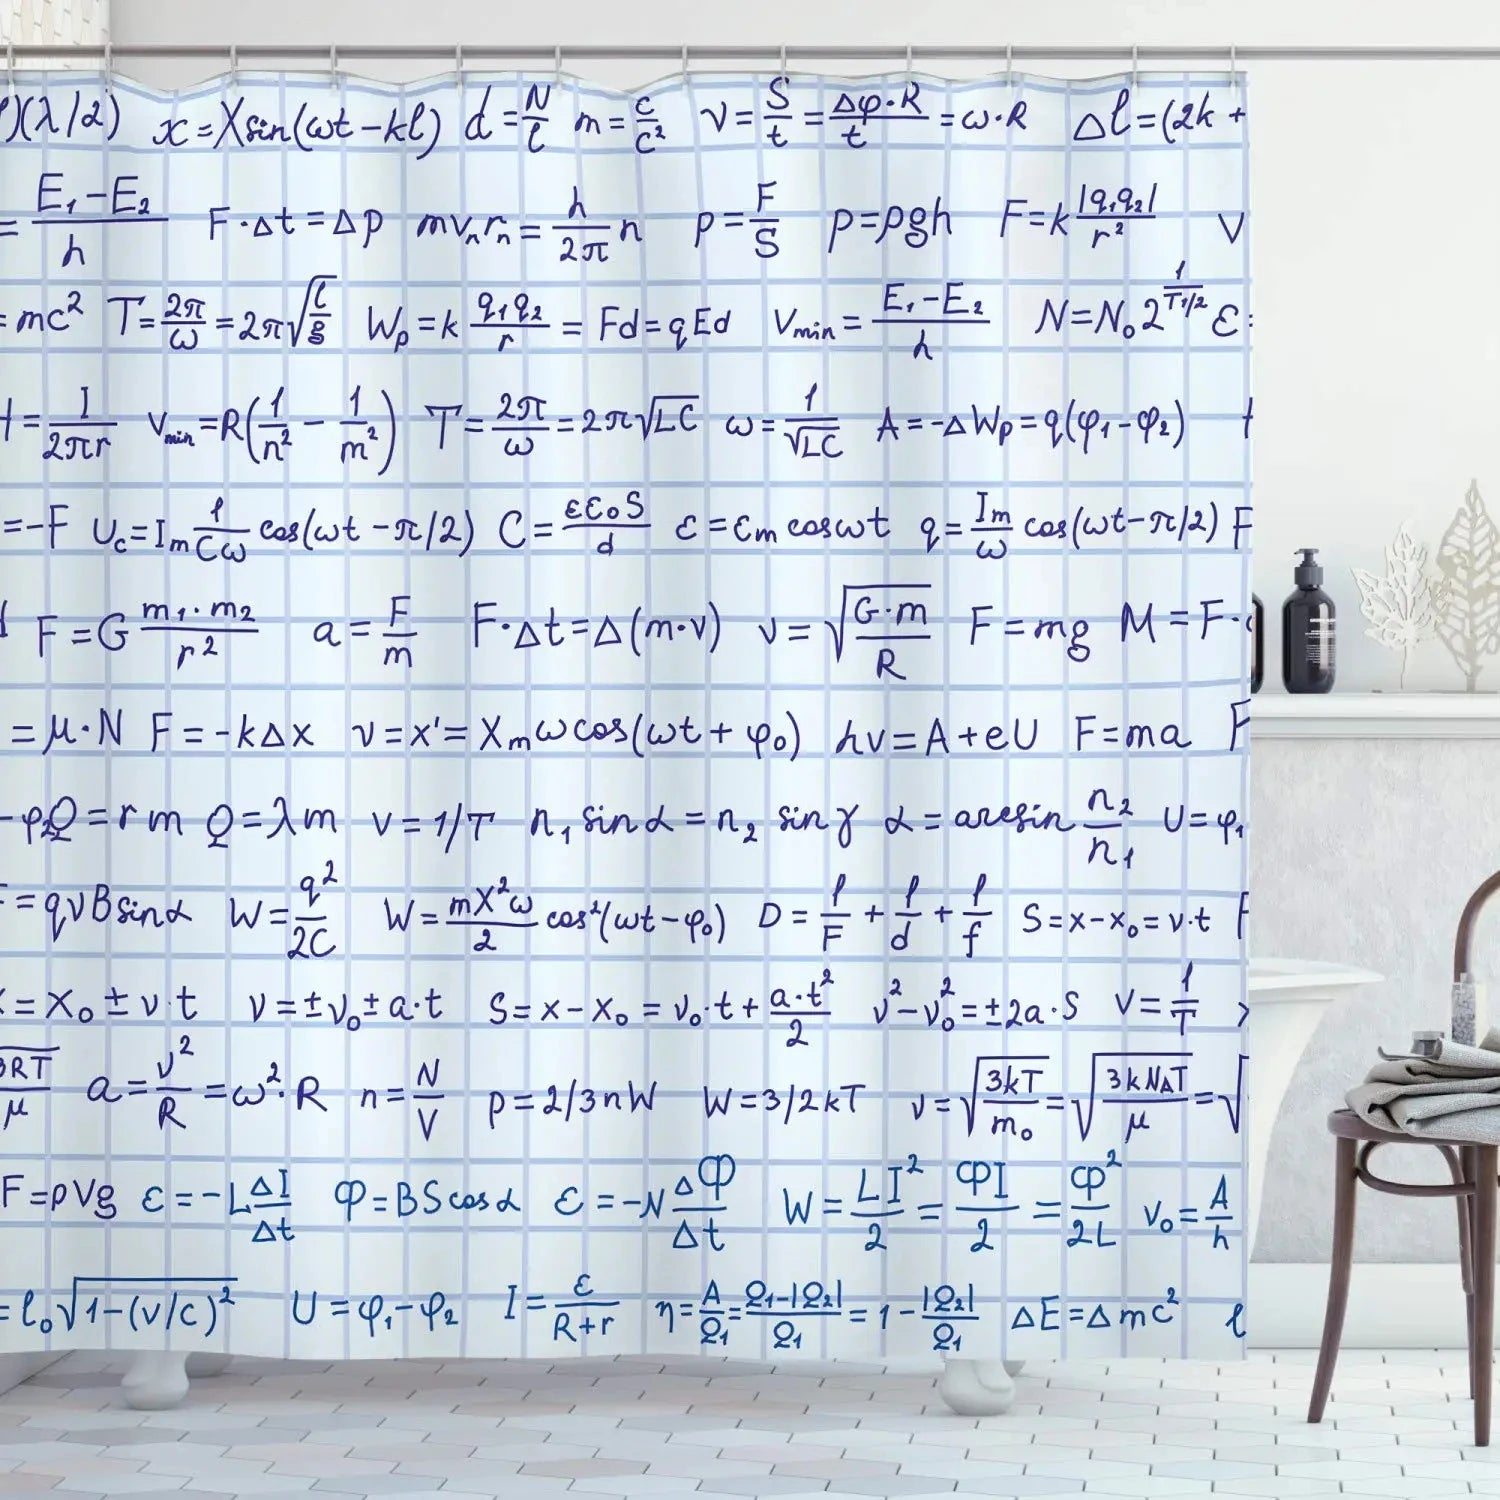 )(λ/2) x=Xsin(ωt-kl) d=N/l m=c/c² v=S/t=Δφ·R/t=ω·R Δl=(2k+
=E₁-E₂/h F·Δt=Δp mvₙrₙ=h/2π n p=F/S p=ρgh F=k|q₁q₂|/r² V
=mc² T=2π/ω=2π√(l/g) Wₚ=k q₁q₂/r=Fd=qEd Vmin=E₁-E₂/h N=N₀2^(1/T1/2) ε=
=I/2πr Vmin=R(1/n²-1/m²) T=2π/ω=2π√LC ω=1/√LC A=-ΔWₚ=q(φ₁-φ₂)
=-F U꜀=Iₘ 1/Cω cos(ωt-π/2) C=εε₀S/d ε=εₘcosωt q=Iₘ/ω cos(ωt-π/2) F
F=G m₁·m₂/r² a=F/m F·Δt=Δ(m·v) v=√(G·m/R) F=mg M=F·
=μ·N F=-kΔx v=x'=Xₘωcos(ωt+φ₀) hv=A+eU F=ma F
-φ₂ Q=rm Q=λm v=1/T n₁sinα=n₂sinγ α=arcsin n₂/n₁ U=φ₁
=qvBsinα W=q²/2C W=mX²ω/2 cos²(ωt-φ₀) D=1/F+1/d+1/f S=x-x₀=v·t F
=x₀±v·t v=±v₀±a·t S=x-x₀=v₀·t+a·t²/2 v²-v₀²=±2a·S V=1/T
3RT/μ a=v²/R=ω²·R n=N/V p=2/3nW W=3/2kT v=√(3kT/m₀)=√(3kNAT/μ)=√
F=ρVg ε=-LΔI/Δt Φ=BScosα ε=-NΔΦ/Δt W=LI²/2=ΦI/2=Φ²/2L v₀=A/h
=l₀√(1-(v/c)²) U=φ₁-φ₂ I=ε/R+r η=A/Q₁=Q₁-|Q₂|/Q₁=1-|Q₂|/Q₁ ΔE=Δmc² l